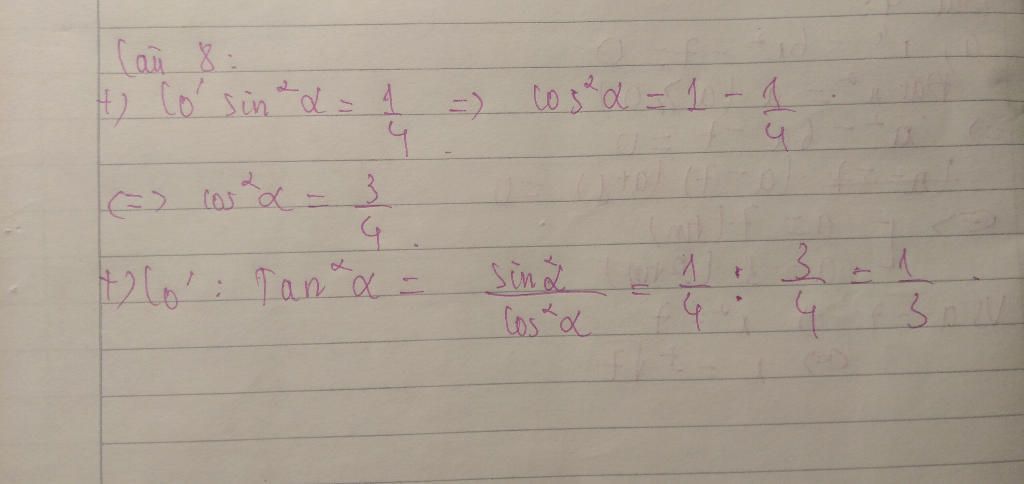 Câu 8:
+) Có sin²α = 1/4 => cos²α = 1 - 1/4.
<=> cos²α = 3/4.
+) Có: Tan²α = sin²α/cos²α = 1/4 : 3/4 = 1/3.